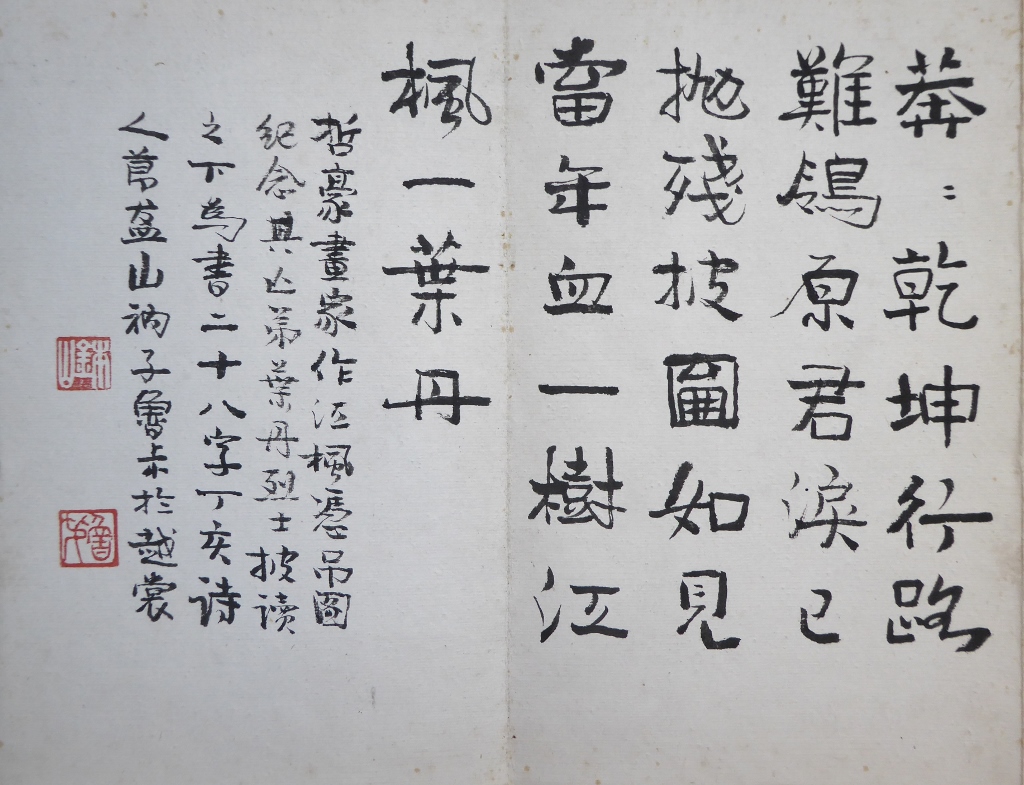 莽〻乾坤行路
難鴒原君淚已
拋殘披圖如見
當年血一樹江
楓一葉丹
哲豪畫家作江楓憑吊圖
紀念其亡弟葉丹烈士披读
之下為書二十八字丁亥诗
人莭盆山衲子魯丈於越裳